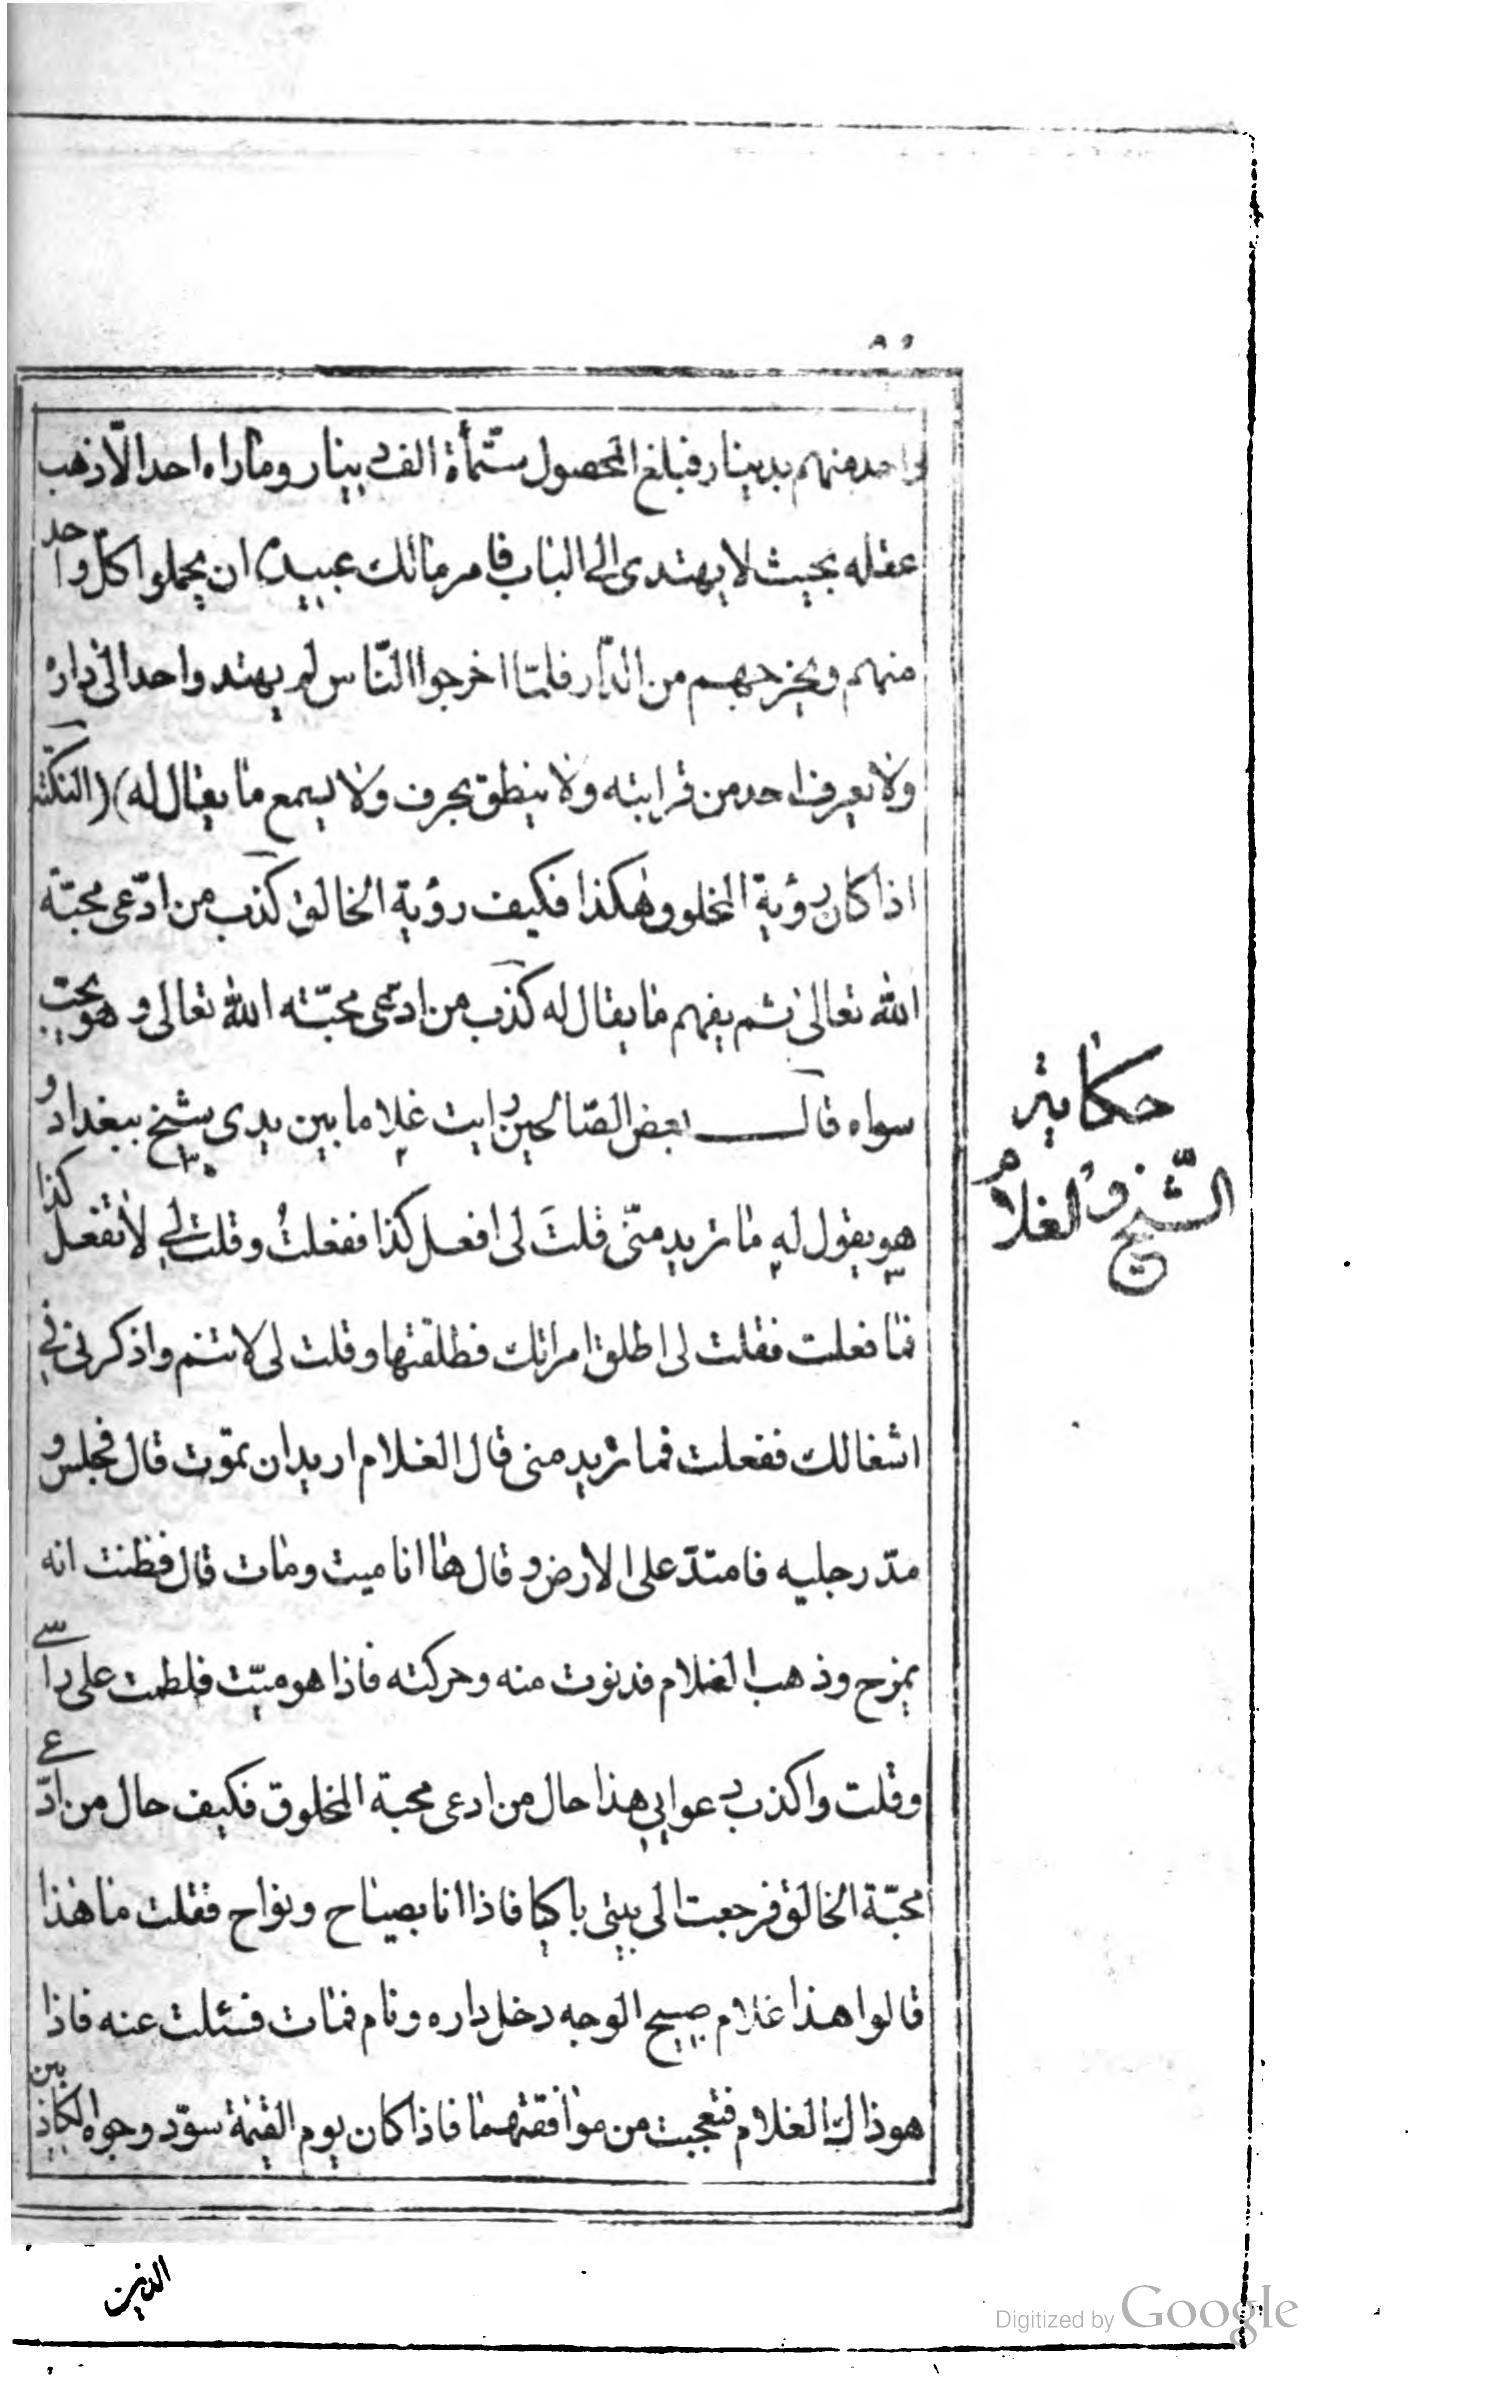 ٨٩
واحد منهم بدينار فبلغ المحصول ستّمأة الف دينار وماراه احد الّا ذهب
عقله بحيث لا يهتدى الى الباب فامر مالك عبيده ان يحملوا كلّ واحد
منهم ويخرجهم من الدّار فلمّا اخرجوا النّاس لم يهتد واحد الى داره
ولا يعرف احد من قرابته ولا ينطق بحرف ولا يسمع ما يقال له) (النكتة
اذا كان رؤية المخلوق هكذا فكيف رؤية الخالق كذب من ادّعى محبّة
الله تعالى ثم يفهم ما يقال له كذب من ادّعى محبّته الله تعالى وهو يحب
سواه قال بعض الصّالحين رايت غلاما بين يدى شيخ ببغداد و
هو يقول له ما تريد منّى قلتَ لى افعل كذا ففعلتُ وقلت لى لا تفعل كذا
فما فعلت فقلت لى اطلق امراتك فطلقتها وقلت لى لا تنم واذكرنى فى
اشغالك ففعلت فما تريد منى قال الغلام اريد ان تموت قال فجلس و
مدّ رجليه فامتدّ على الارض وقال ها انا ميت ومات قال فظنت انه
يمزح وذهب الغلام فدنوت منه وحركته فاذا هو ميّت فلطمت على راسى
وقلت واكذب دعوايى هذا حال من ادعى محبة المخلوق فكيف حال من ادّعى
محبّة الخالق فرجعت الى بيتى باكيا فاذا انا بصياح ونواح فقلت ما هذا
قالوا هذا غلام صبيح الوجه دخل داره ونام فمات فسئلت عنه فاذا
هو ذاك الغلام فتعجبت من موافقتهما فاذا كان يوم القيمة سوّد وجوه الكاذبين
حكاية
الشّيخ والغلام
الذين
Digitized by Google